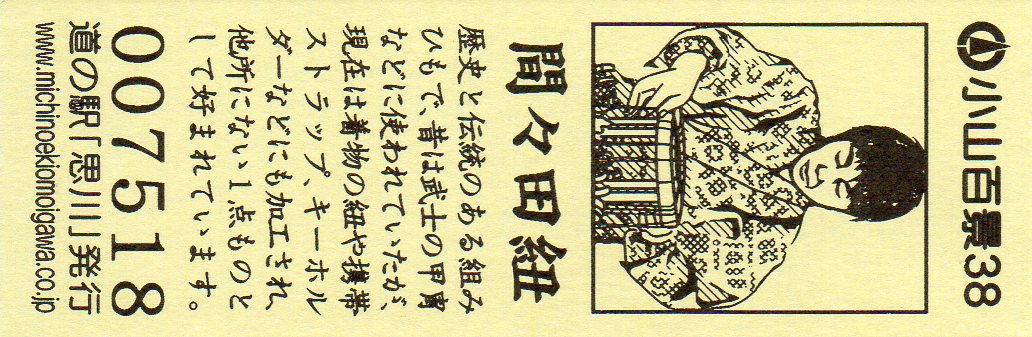 小山百景38
間々田紐
歴史と伝統のある組み
ひもで、昔は武士の甲冑
などに使われていたが、
現在は着物の紐や携帯
ストラップ、キーホル
ダーなどにも加工され、
他所にない1点ものと
して好まれています。
007518
道の駅「思川」発行
www.michinoekiomoigawa.co.jp